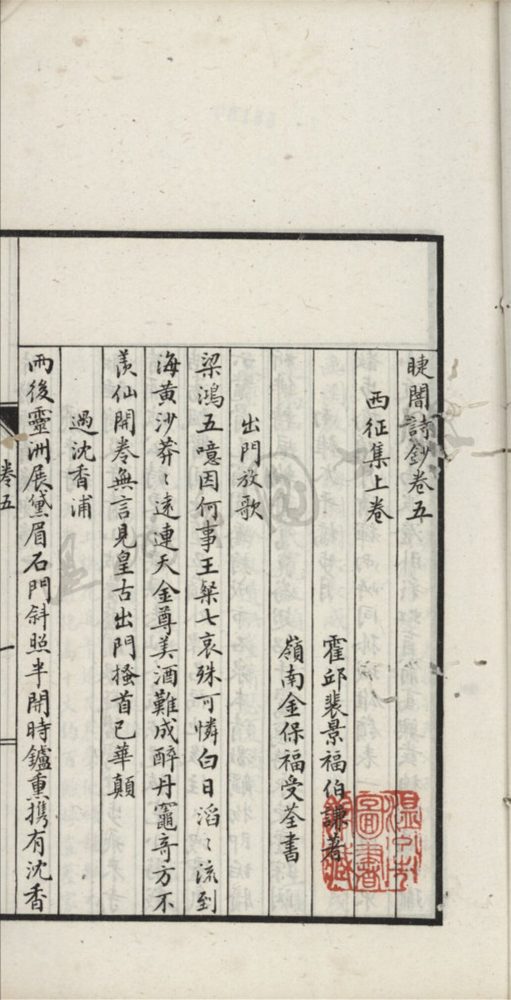 睫闇詩鈔卷五
西征集上卷
霍邱裴景福伯謙著
嶺南金保福受荃書
出門放歌
梁鴻五噫因何事王粲七哀殊可憐白日滔〻流到
海黃沙莽〻遠連天金尊美酒難成醉丹竈奇方不
羨仙開卷無言見皇古出門搔首已華顛
過沈香浦
雨後靈洲展黛眉石門斜照半開時鑪熏携有沈香
卷五
一